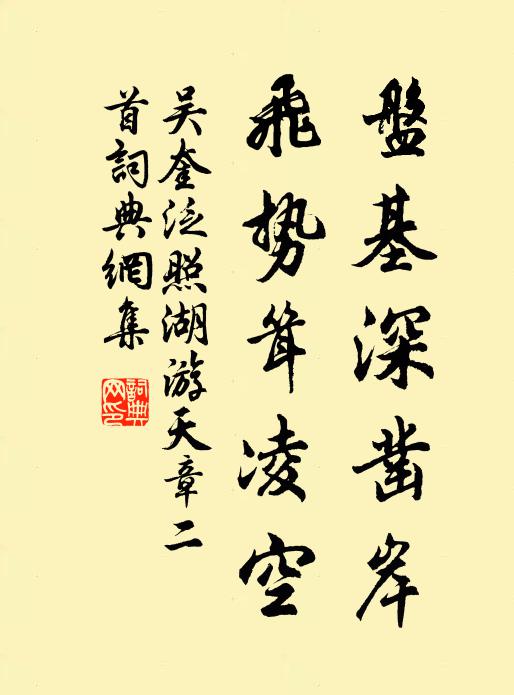 盤基深凿岸
飛势耸凌空
吴奎泛照湖游天章二
首詞典網集
詞典
网印